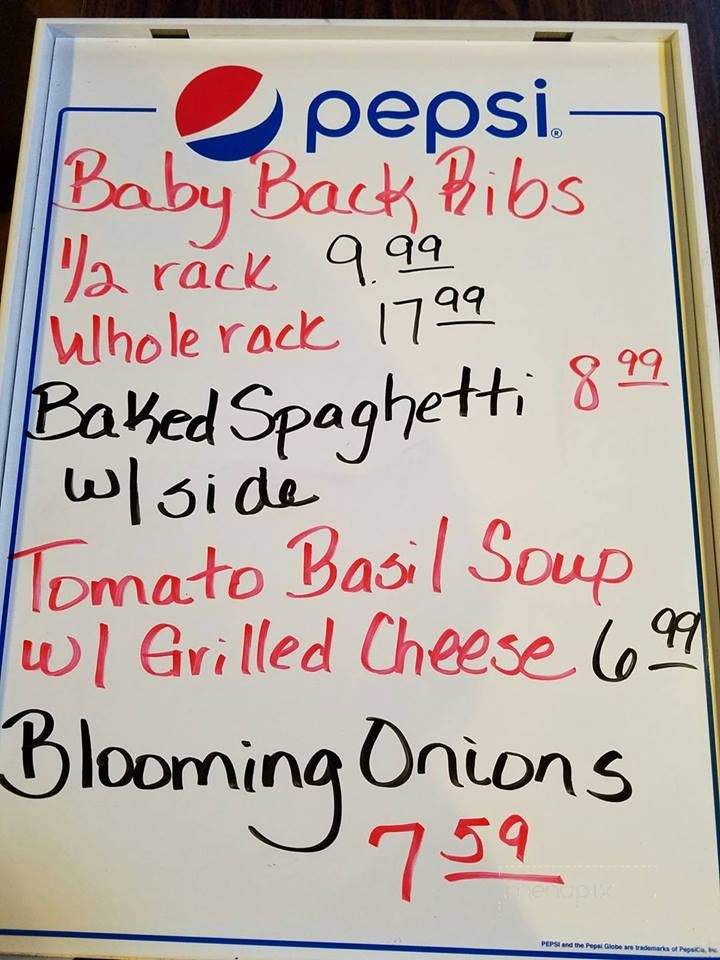 pepsi®
Baby Back Ribs
1/2 rack 9.99
Whole rack 17 99
Baked Spaghetti 8 99
w/ side
Tomato Basil Soup
w/ Grilled Cheese 6 99
Blooming Onions
7 59
menupix
PEPSI and the Pepsi Globe are trademarks of PepsiCo, Inc.